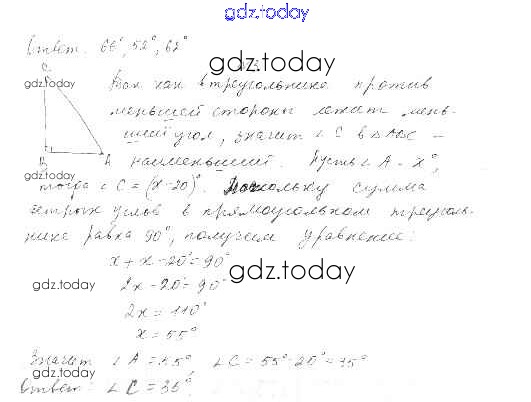 gdz.today
Ответ: 66°, 52°, 62°
gdz.today
C
gdz.today
Так как в треугольнике против
меньшей стороны лежит мень-
ший угол, значит ∠C в ΔABC –
B A наименьший. Пусть ∠A – x°,
gdz.today
тогда ∠C = (x-20)°. Поскольку сумма
острых углов в прямоугольном треуголь-
нике равна 90°, получим уравнение:
x + x - 20° = 90°
gdz.today
2x - 20° = 90°
gdz.today
2x = 110°
x = 55°
Значит ∠A = 55°, ∠C = 55° - 20° = 35°
gdz.today
Ответ: ∠C = 35°